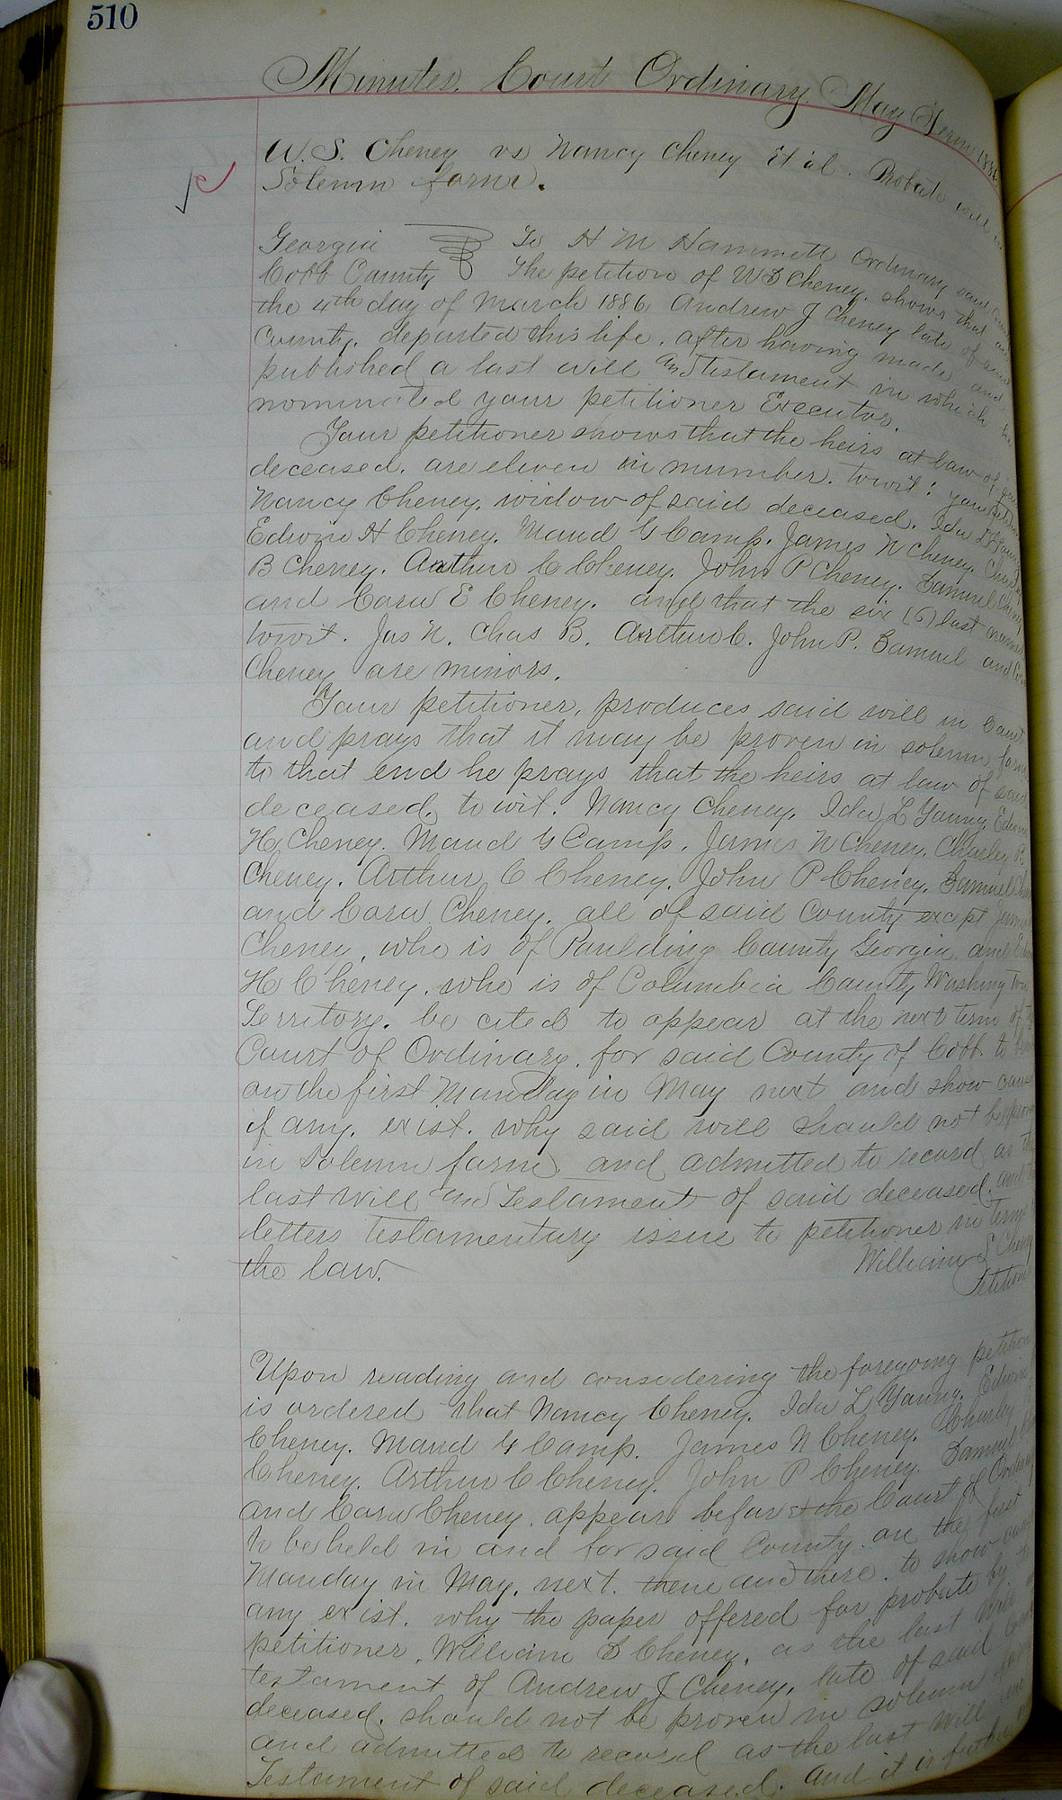 510
Minutes, Court Ordinary May Term 1886
W. S. Cheney vs Nancy Cheney Et al. Probate will in
Solemn form.
Georgia To H M Hammett Ordinary said
Cobb County The petition of W S Cheney. shows that
the 4th day of March 1886, Andrew J Cheney late of said
County. departed this life, after having made and
published a last will and Testament in which he
nominated your petitioner Executor.
Your petitioner shows that the heirs at law of
deceased. are eleven in number. towit: your
Nancy Cheney. widow of said deceased. Ida L Young
Edwin H Cheney. Maud G Camp. James N Cheney.
B Cheney. Arthur C Cheney. John P Cheney. Samuel
and Cora E Cheney. and that the six (6) last named
towit. Jas N. Chas B. Arthur C. John P. Samuel and
Cheney are minors.
Your petitioner, produces said will in Court
and prays that it may be proven in solemn form
to that end he prays that the heirs at law of said
deceased, to wit. Nancy Cheney. Ida L Young. Edwin
H, Cheney. Maud G Camp. James N Cheney. Charley B.
Cheney. Arthur C Cheney. John P Cheney. Samuel
and Cora Cheney. all of said County except
Cheney, who is of Paulding County Georgia and
H Cheney. who is of Columbia County Washington
Territory. be cited to appear at the next term of
Court of Ordinary. for said County of Cobb to
on the first Monday in May next and show cause
if any. exist. why said will should not be proven
in Solemn form and admitted to record as the
last Will and Testament of said deceased. and
letters testamentary issue to petitioner in terms
the law. William S Cheney
Petitioner
Upon reading and considering the foregoing petition
is ordered that Nancy Cheney. Ida L Young. Edwin
Cheney. Maud G Camp. James N Cheney. Charley
Cheney. Arthur C Cheney. John P Cheney. Samuel
and Cora Cheney. appear before the Court of Ordinary
to be held in and for said County on the first
Monday in May. next. there and there. to show cause
any exist. why the paper offered for probate by
petitioner, William S Cheney. as the last Will
testament of Andrew J Cheney. late of said
deceased. should not be proven in solemn form
and admitted to record as the last Will and
Testament of said deceased. And it is further